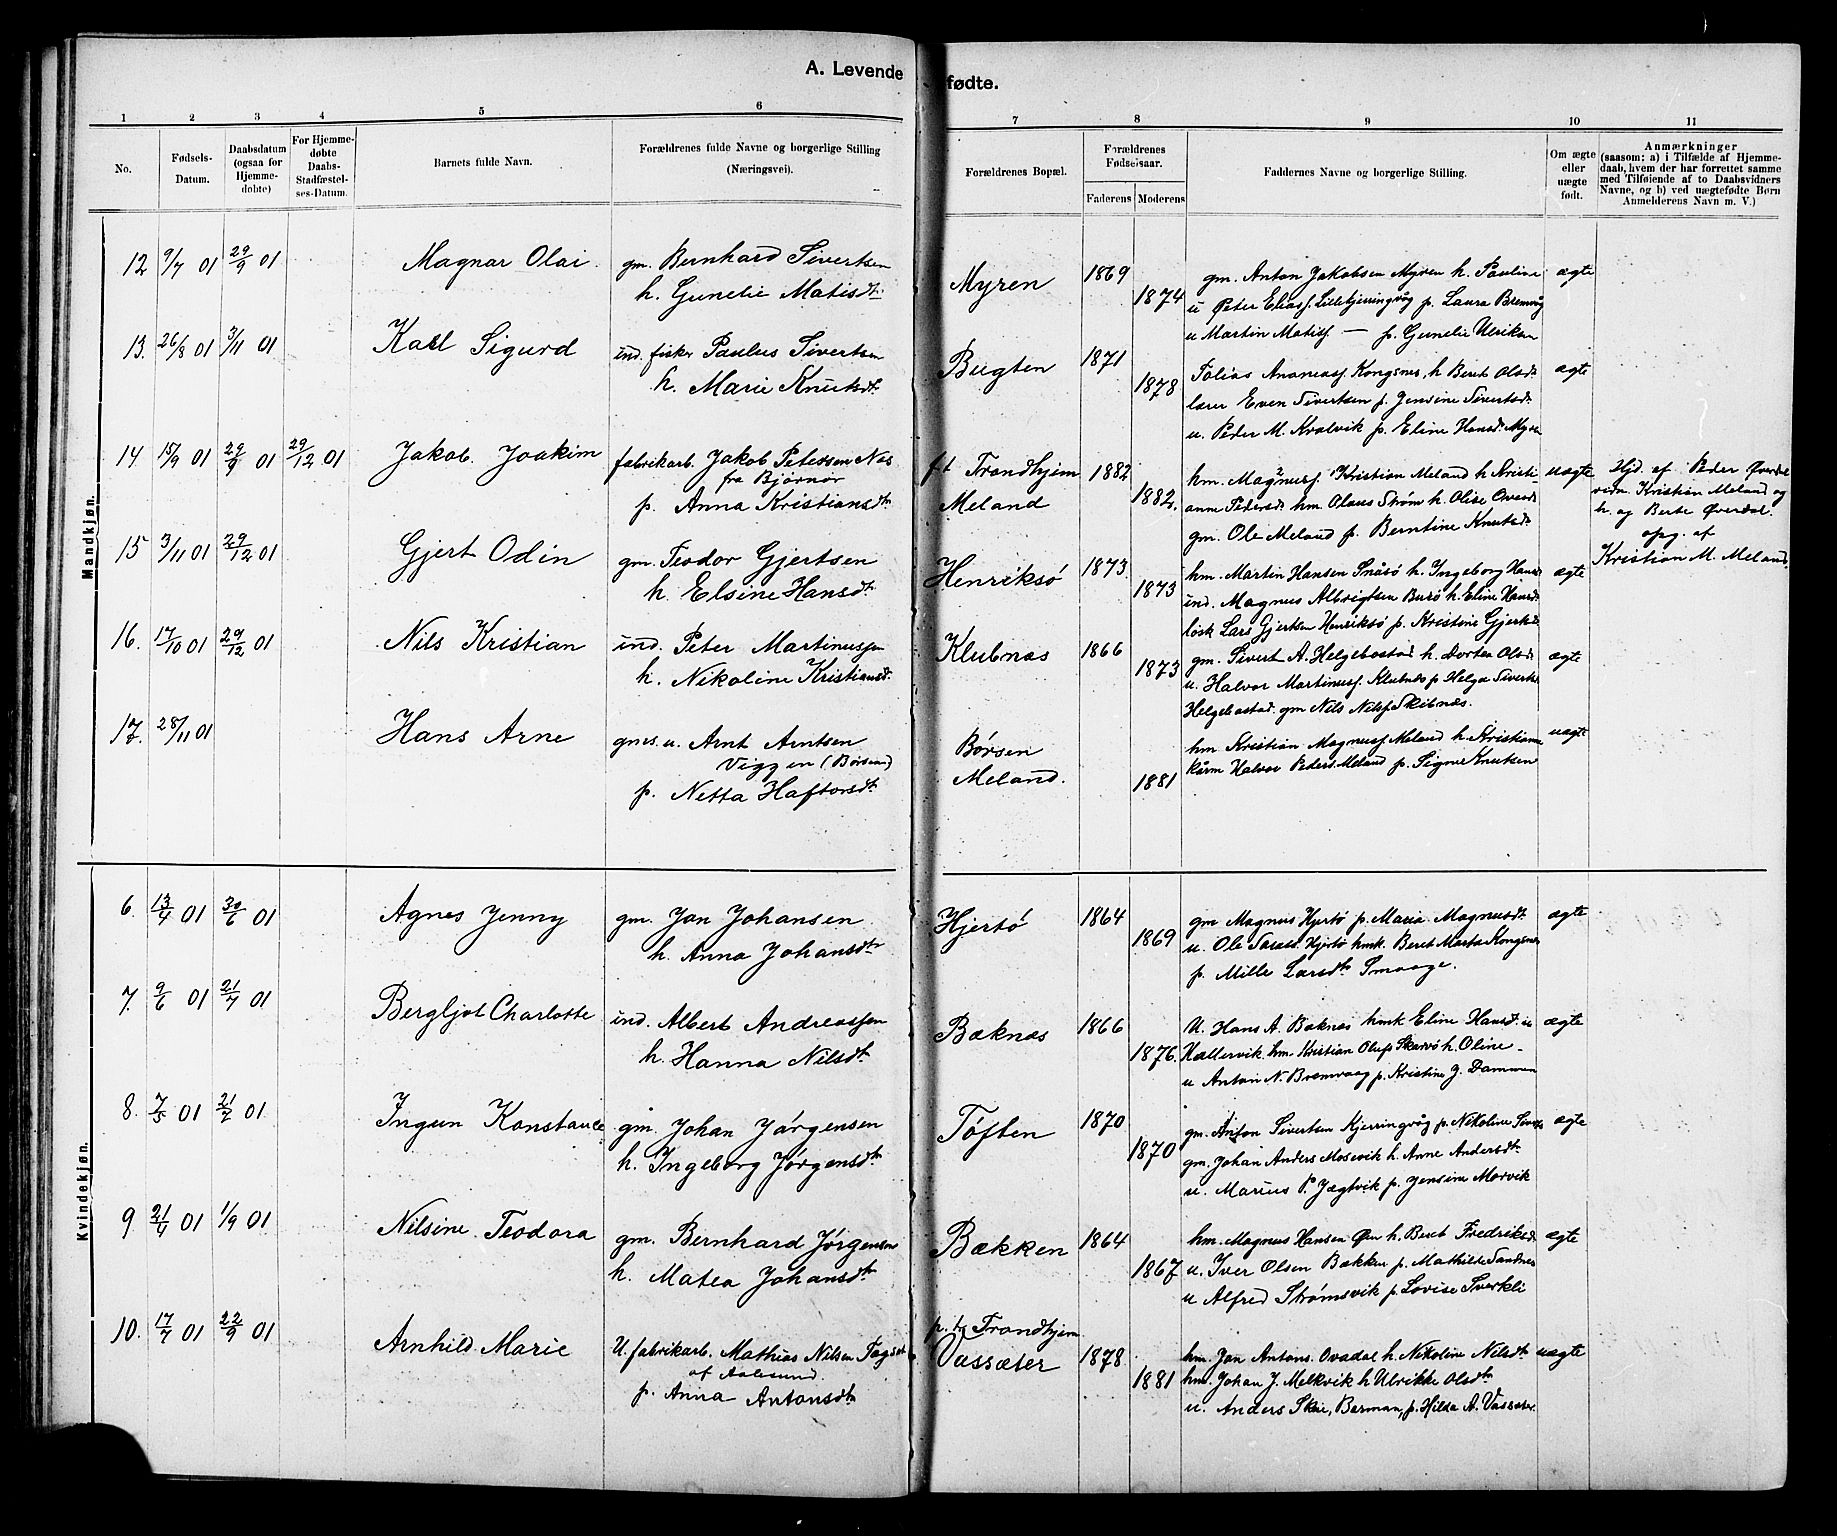 A. Levende fødte.
1 2 3 4 5 6 7 8 9 10 11
No.
Fødsels-Datum.
Daabsdatum (ogsaa for Hjemme-døbte)
For Hjemme-døbte Daabs-Stadfæstel-ses-Datum.
Barnets fulde Navn.
Forældrenes fulde Navne og borgerlige Stilling (Næringsvei).
Forældrenes Bopæl.
Forældrenes Fødselsaar.
Faderens Moderens
Faddernes Navne og borgerlige Stilling.
Om ægte eller uægte født.
Anmærkninger
(saasom: a) i Tilfælde af Hjemme-
daab, hvem der har forrettet samme
med Tilføiende af to Daabsvidners
Navne, og b) ved uægtefødte Børn
Anmelderens Navn m. V.)
Mandkjøn.
12 9/7 01 29/9 01 Magnar Olai. gm. Bernhard Sivertsen
h. Gunelie Matisdt.
Myren 1869 1874
gm. Anton Jakobsen Myren h. Pauline ægte
u Peter Eliass. Lillekjerringvåg p. Laura Bremvåg
u Martin Matiss. — p. Gunelie Ulrikan
13. 26/8 01 3/11 01 Karl Sigurd ind. fisker Paulus Sivertsen
h. Marie Knutsdt.
Bugten 1871 1878
Tolias Ananiass. Kongsnes, h Beret Olsdt. ægte
lærer Even Sivertsen p. Jensine Sivertsdt.
u. Peder M. Kvalvik p. Eline Hansdt. Myren
14 15/9 01 29/9 01 29/12 01 Jakob Joakim fabrikarb. Jakob Petersen Næs
fra Bjørnør
p. Anna Kristiansdt.
ft Trondhjem
Meland 1882 1882.
hm. Magnusf. Kristian Meland h Kristi- uægte
anne Pedersdt. hm Olaus Strøm h. Olise
gm. Ole Meland p. Berntine Knutsdt.
Hjd. af Peder Øverdal
vidn. Kristian Meland og
h. og Berte Øverdal.
opg. af
Kristian M. Meland.
15 3/11 01 29/12 01 Gjert Odin gm. Teodor Gjertsen
h. Elsine Hansdt.
Henriksø 1873. 1873
hm. Martin Hansen Snåsø h. Ingeborg Hansdt. ægte
ind. Magnus Albrigtsen Burø h. Eline Hansdt.
løsk Lars Gjertsen Henriksø p. Kristine Gjertsdt.
16. 17/10 01 29/12 01 Nils Kristian ind. Peter Martinussen
h. Nikoline Kristiansdt.
Klubnæs 1866 1873
gm. Sivert A. Helgebostad h. Dortea Olsdt. ægte
u. Halvor Martinusf. Klubnes p Helga Sivertsdt.
Helgebostad. gm Nils Nilsf. Skibnæs.
17. 28/11 01 Hans Arne gms. u. Arnt Arntsen
Viggen (Børsen)
p. Netta Haftorsdt.
Børsen
Meland. 1881
hm Kristian Magnusf Meland h. Kristianne uægte
Halvor Peders. Meland p. Signe Knutsen
Kvindekjøn.
6. 13/4 01 30/6 01 Agnes Jenny gm. Jan Johansen
h. Anna Johansdt.
Hjertø 1864 1869
gm Magnus Hjertø p. Maria Magnusdt. ægte
u. Ole Hjertø hmk. Beret Marta Kongsnes
p. Mille Larsdt. Smaage.
7. 9/6 01 21/7 01 Bergljot Charlotte ind. Albert Andreassen
h. Hanna Nilsdt.
Bæknæs 1866 1876.
U. Hans A. Bæknæs hmk Eline Hansdt. ægte
Hallervik. hm Kristian Oluf Skarvø h. Oline
u Anton N. Bremvaag p. Kristine G. Dammen
8. 7/5 01 21/7 01 Ingun Konstance gm. Johan Jørgensen
h. Ingeborg Jørgensdt.
Tøften 1870 1870
gm. Anton Sivertsen Kjerringvåg p. Nikoline ægte
gm. Johan Anders Mosevik h. Anne Andersdt.
u. Marius P. Jægtvik p. Jensine Morvik
9 21/4 01 1/9 01 Nilsine Teodora gm. Bernhard Jørgensen
h. Matea Johansdt.
Bækken 1864 1867
hm. Magnus Hansen Øen h. Beret Fredriksdt. ægte
u. Iver Olsen Bækken p. Mathilde Sandnes
u Alfred Strømsvik p. Lovise Sverkli
10. 17/7 01 22/9 01 Arnhild Marie U. fabrikarb. Mathias Nilsen
af Aalesund.
p. Anna Antonsdt.
p. t. Trondhjem
Vassæter 1878 1881
hm. Jan Antons. Ovadal h. Nikoline Nilsdt. uægte
hm. Johan J. Melkvik h Ulrikke Olsdt.
u. Anders Skei, Barman, p. Hilda A. Vassæter.